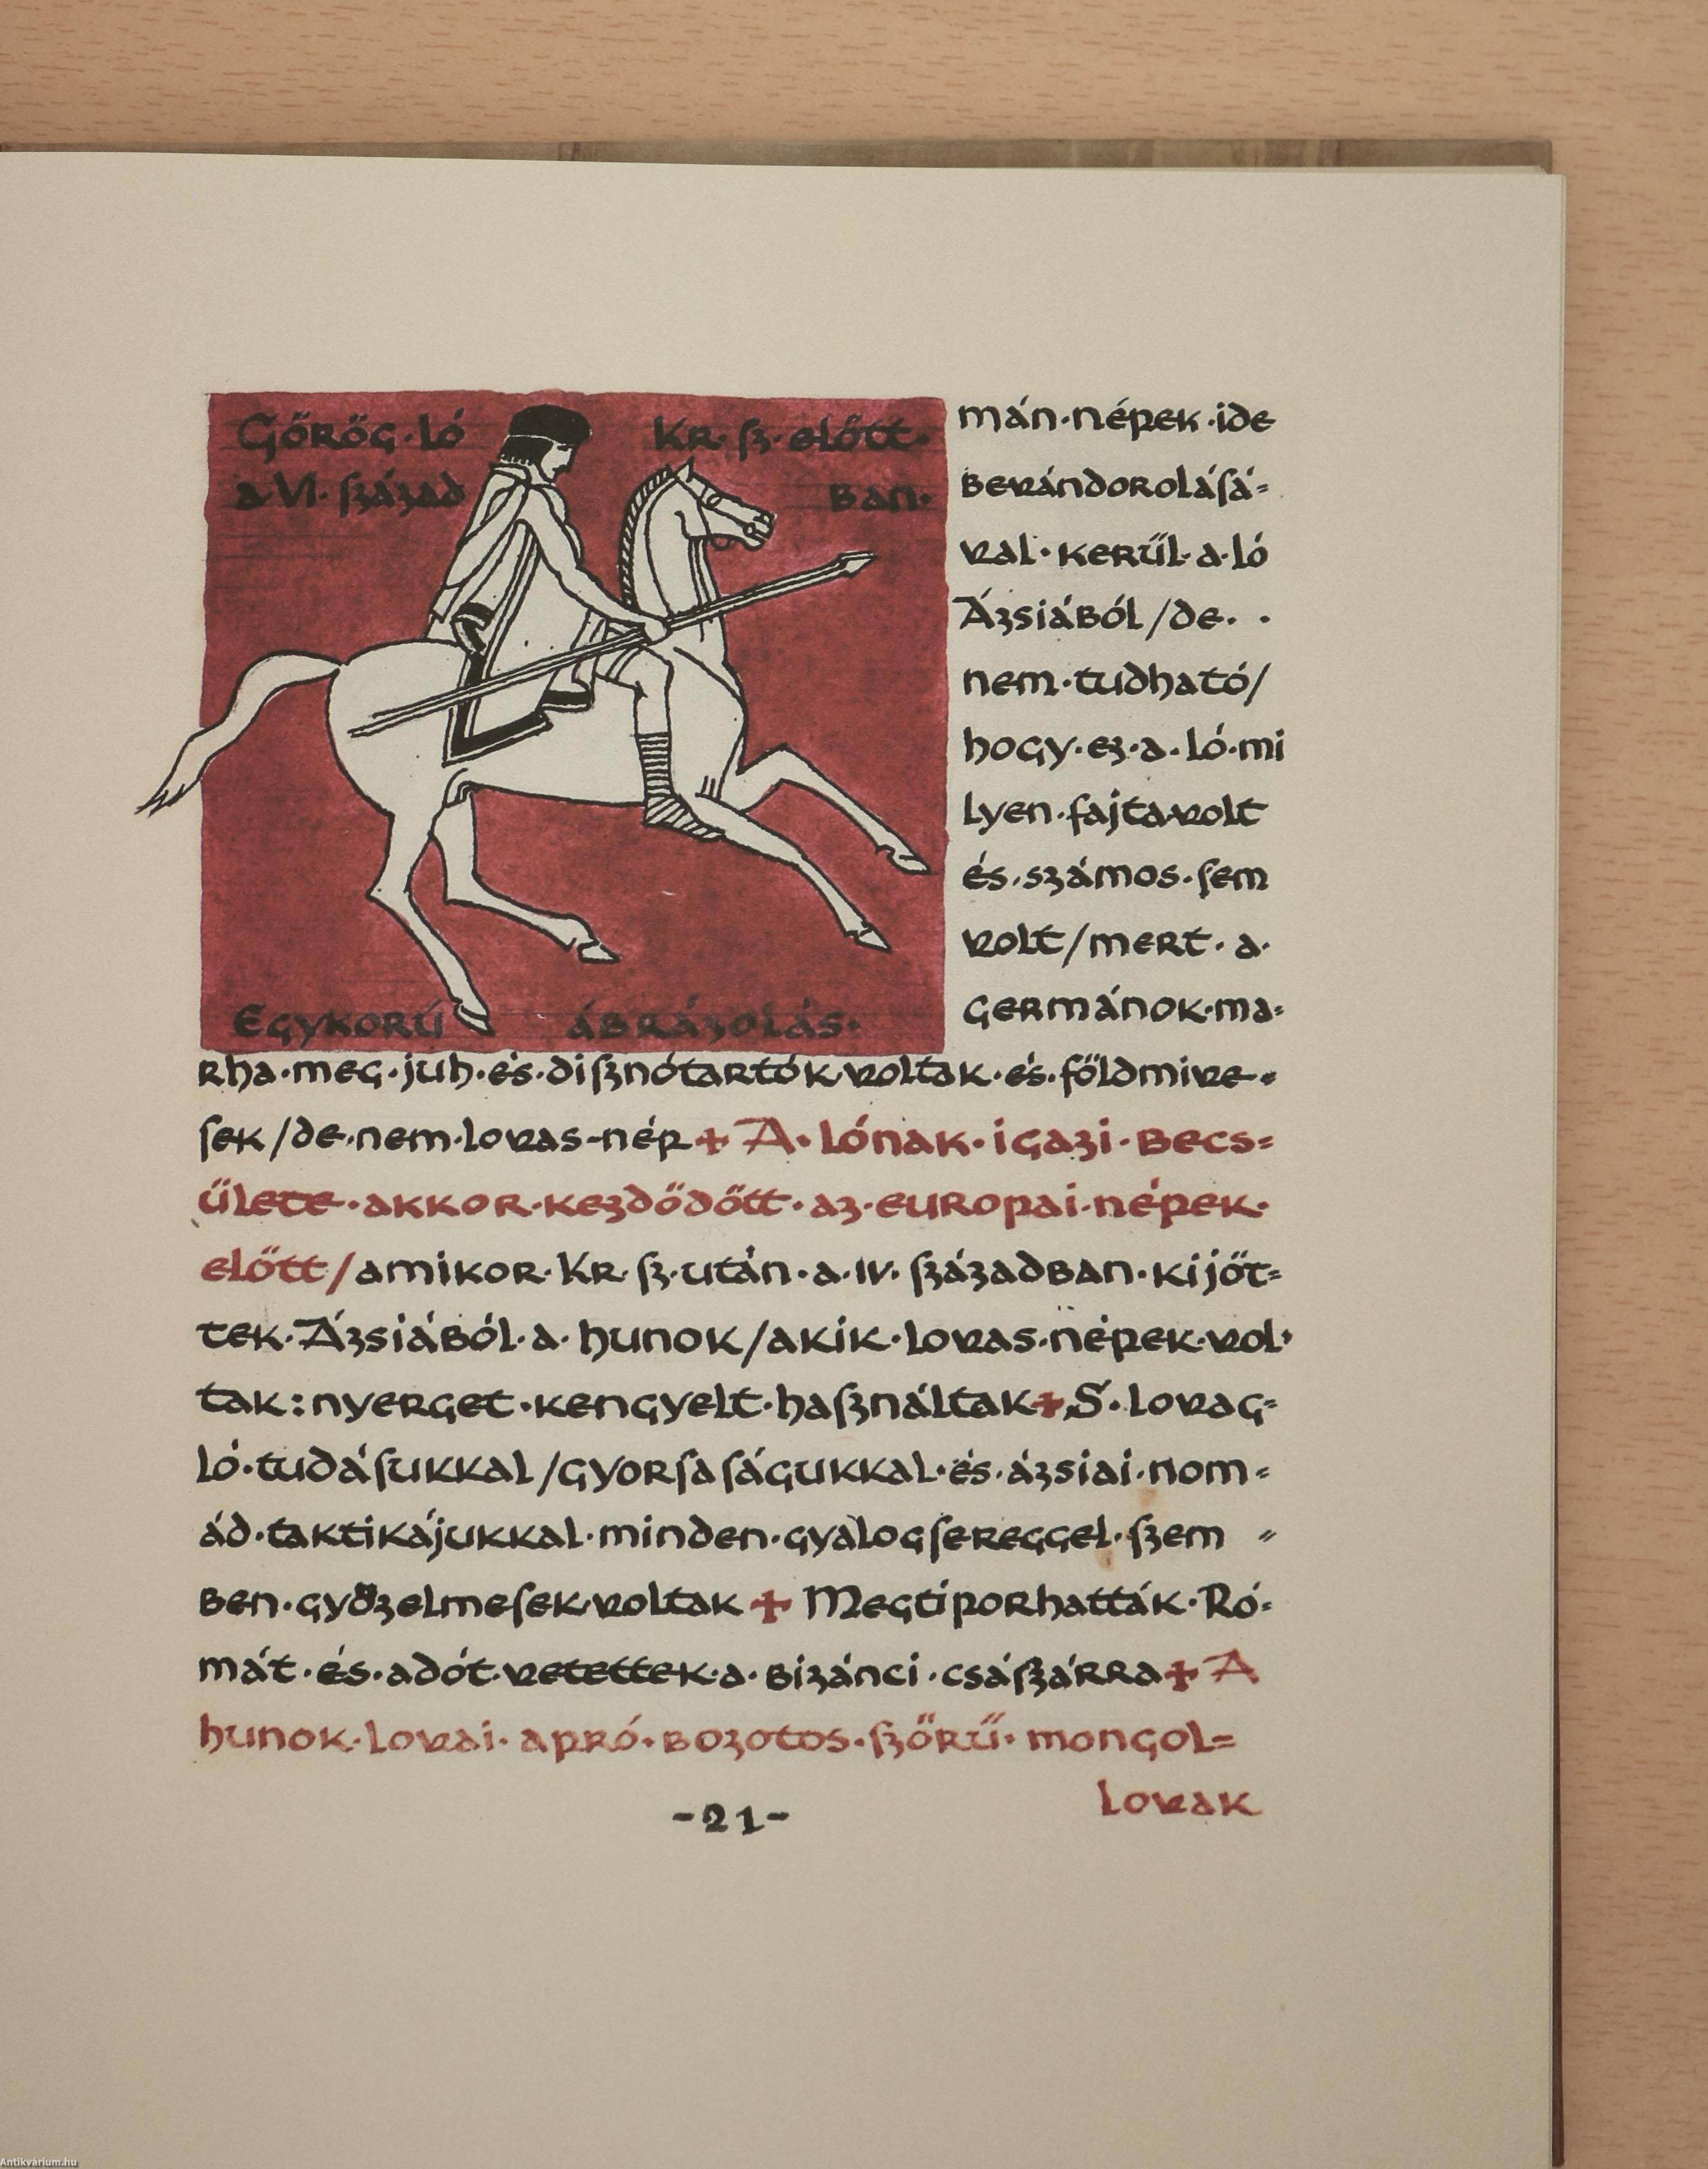 Görög·ló
Kr·sz·előtt·
a·VI·század
ban·
Egykorú
ábrázolás·
mán·népek·ide
bevándorolásá=
val·kerül·a·ló
Ázsiából/de··
nem·tudható/
hogy·ez·a·ló·mi
lyen·fajta·volt
és·számos·sem
volt/mert·a·
germánok·ma=
rha·meg·juh·és·disznótartók·voltak·és·földmive=
sek/de·nem·lovas-nép+A·lónak·igazi·becs=
ülete·akkor·kezdődött·az·europai·népek·
előtt/amikor·Kr·sz·után·a·IV·században·kijöt=
tek·Ázsiából·a·hunok/akik·lovas·népek·vol=
tak:nyerget·kengyelt·használtak+S·lovag=
ló·tudásukkal/gyorsaságukkal·és·ázsiai·nom=
ád·taktikájukkal·minden·gyalogsereggel·szem =
ben·győzelmesek·voltak+Megtiporhatták·Ró=
mát·és·adót·vetettek·a·bizánci·császárra+A
hunok·lovai·apró·bozotos·szőrű·mongol=
lovak
-21-
Antikvárium.hu